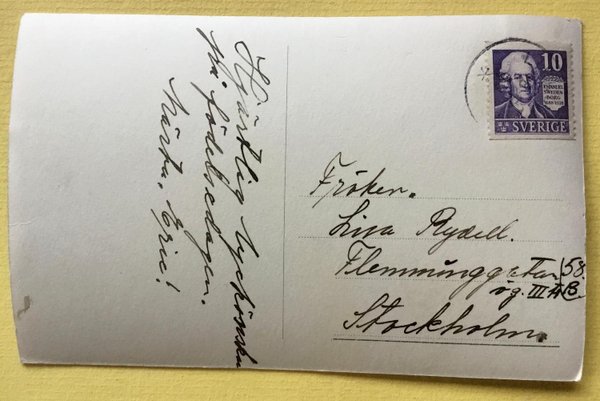 Hjärtlig lyckönskan
på födelsedagen.
Märta, Eric!
10
EMANUEL
SWEDEN-
BORG
1688-1938
SVERIGE
Fröken.
Lisa Rydell.
Flemminggatan 58.
ög. III B.
Stockholm.